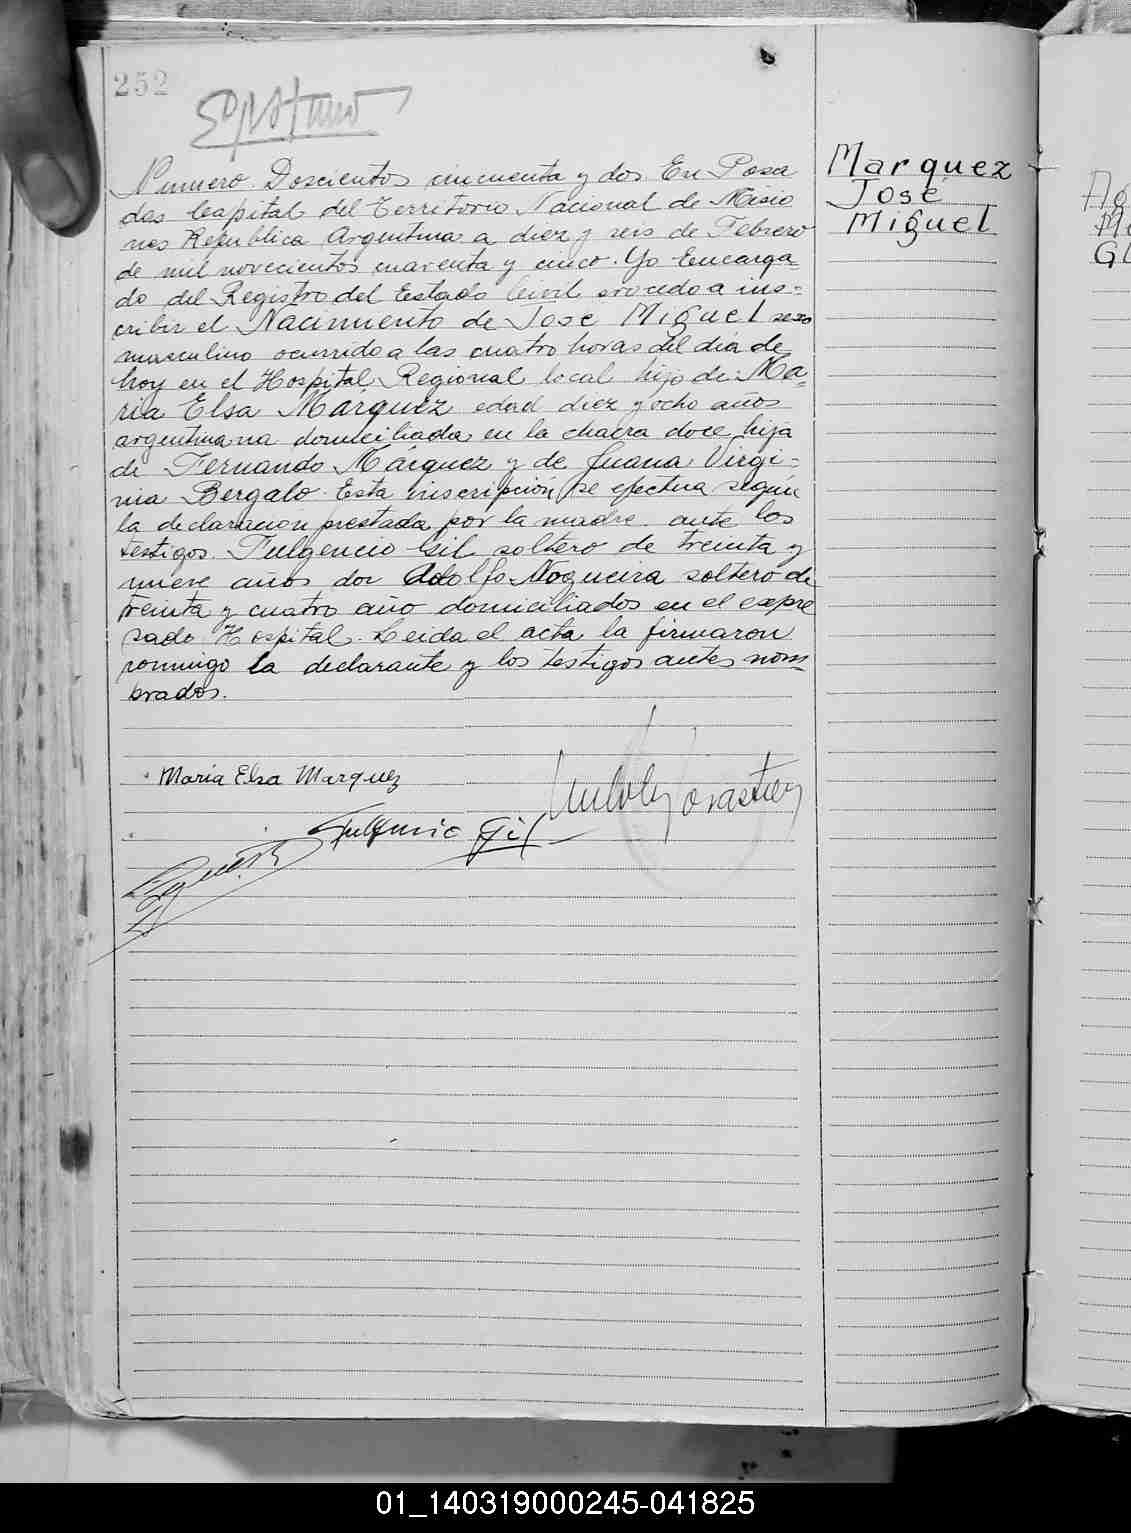 252
Marquez
José
Miguel
Numero Doscientos cincuenta y dos En Posa
das Capital del Territorio Nacional de Misio
nes Republica Argentina a diez y seis de Febrero
de mil novecientos cuarenta y cinco. Yo Encarga
do del Registro del Estado Civil procedo a ins=
cribir el Nacimiento de Jose Miguel sexo
masculino ocurrido a las cuatro horas del dia de
hoy en el Hospital Regional local hijo de Ma=
ria Elsa Márquez edad diez y ocho años
argentina na domiciliada en la chacra doce hija
de Fernando Márquez y de Juana Virgi=
nia Bergalo. Esta inscripción se efectua según
la declaracion prestada por la madre ante los
testigos Fulgencio Gil soltero de treinta y
nueve años don Adolfo Nogueira soltero de
treinta y cuatro año domiciliados en el expre
sado Hospital. Leida el acta la firmaron
conmigo la declarante y los testigos antes nom
brados.
Maria Elsa Marquez
Fulgencio Gil
01_140319000245-041825